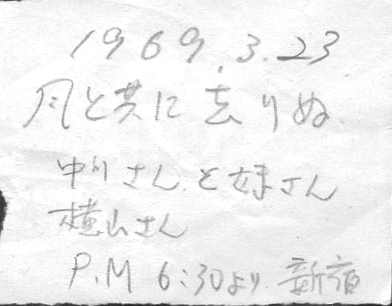 1969.3.23
風と共に去りぬ
中川さんと妹さん
横山さん
P.M 6:30より 新宿